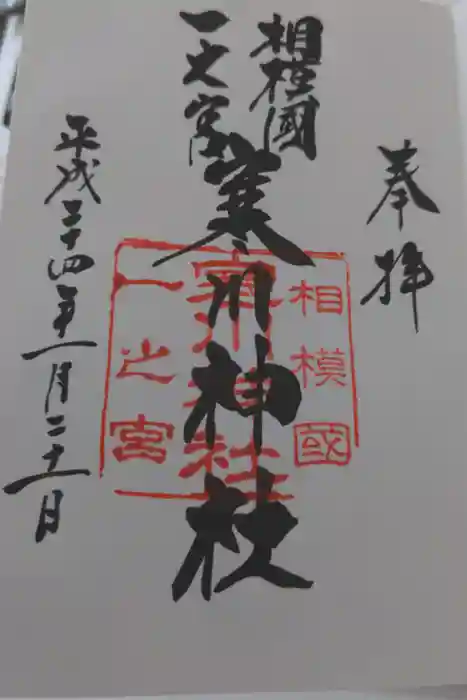 奉拝
相模國
一之宮
寒川神社
平成二十四年一月二十一日
相模國
寒川神社
一之宮